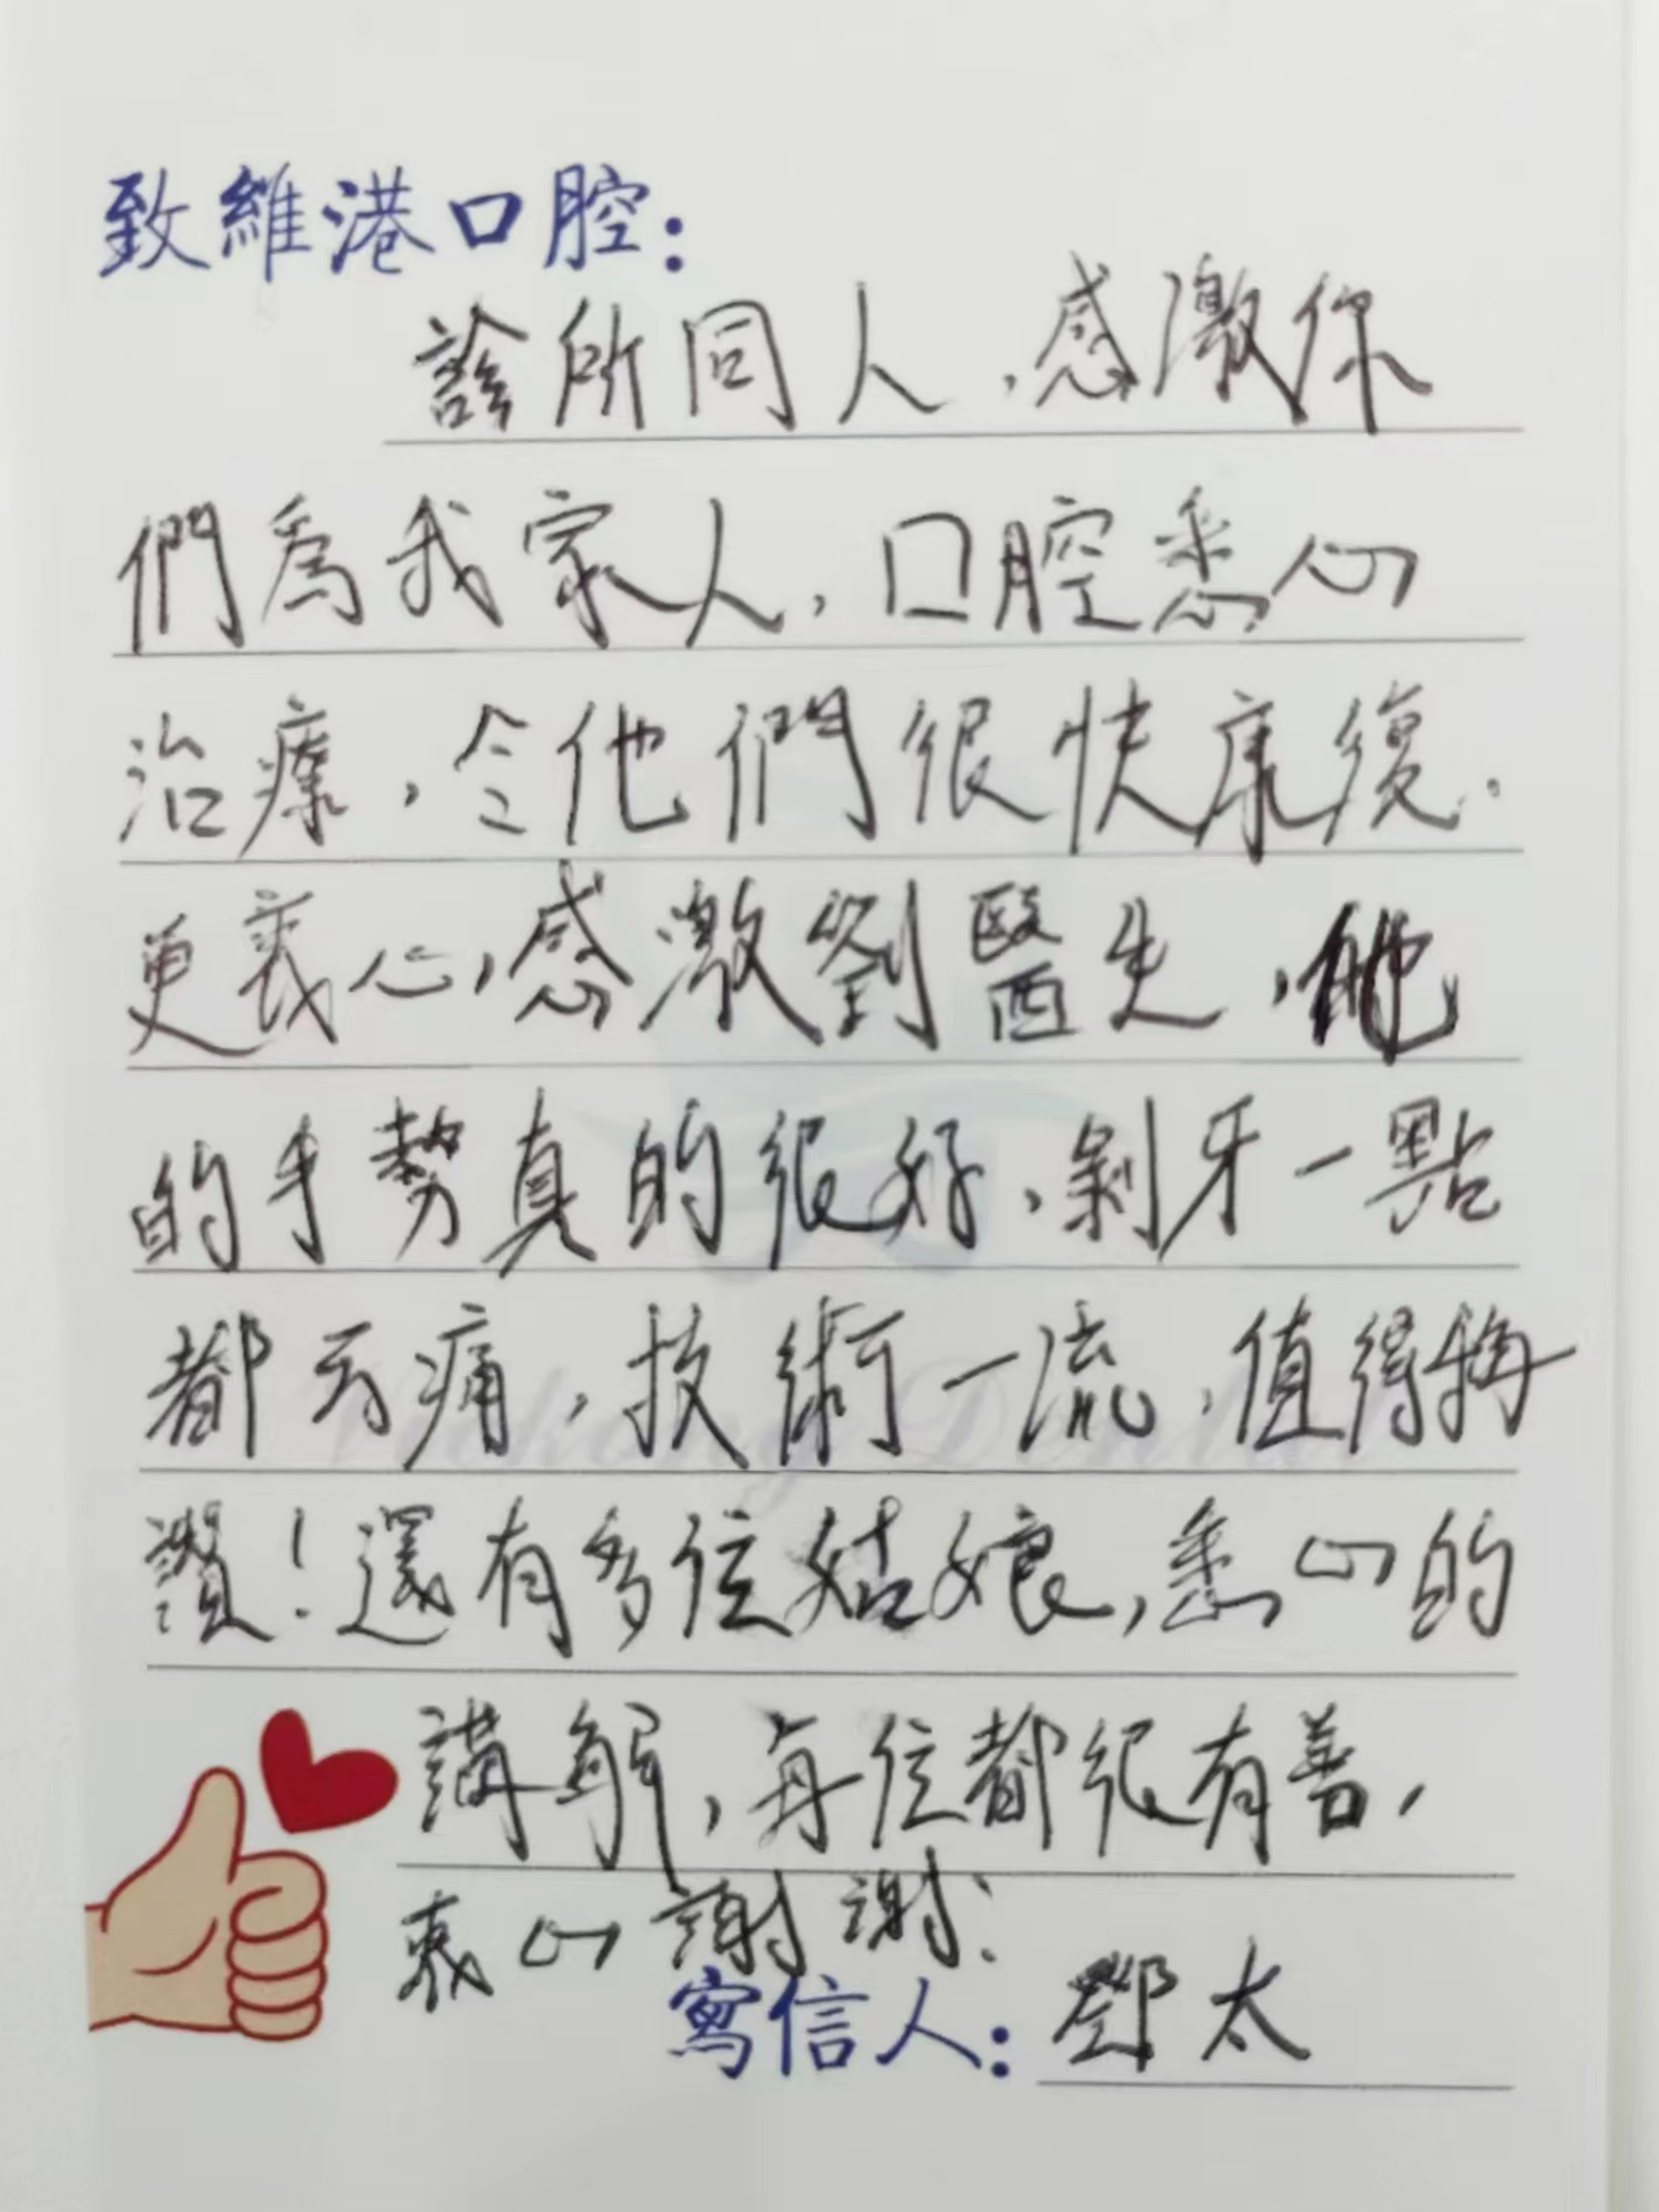 致維港口腔：
診所同人，感激你
們為我家人，口腔悉心
治療，令他們很快康復．
更衷心，感激劉醫生，他
的手勢真的很好，剝牙一點
都冇痛，技術一流，值得稱
讚！還有多位姑娘，悉心的
講解，每位都很有善，
衷心謝謝．
寫信人：鄧太